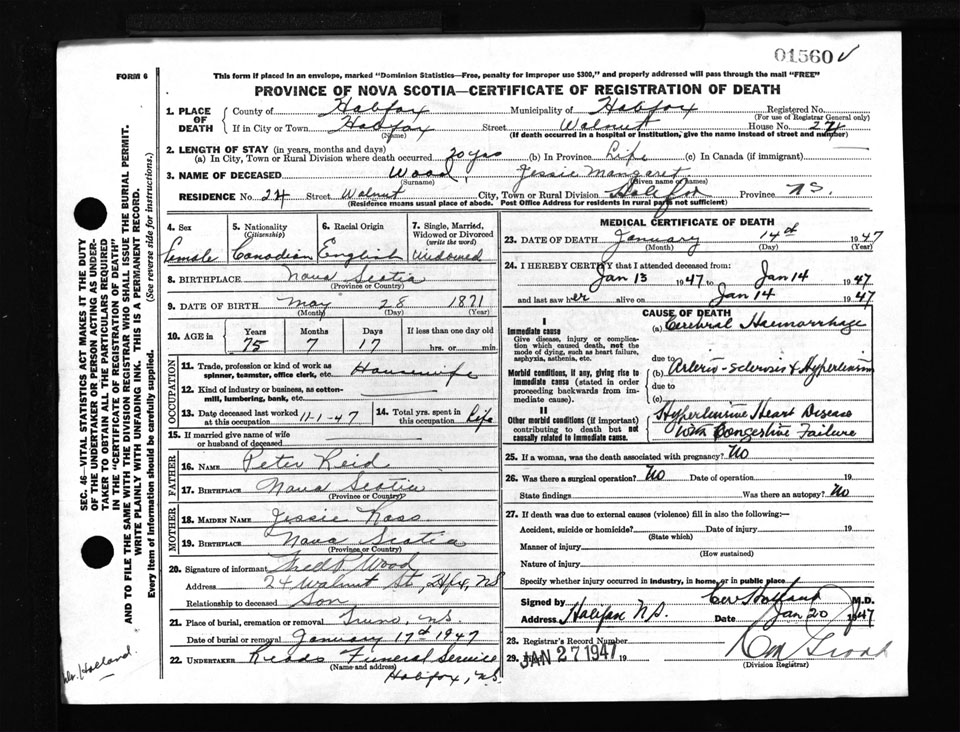 01560 √
FORM 6
This form if placed in an envelope, marked "Dominion Statistics—Free, penalty for improper use $300," and properly addressed will pass through the mail "FREE"
PROVINCE OF NOVA SCOTIA—CERTIFICATE OF REGISTRATION OF DEATH
1. PLACE OF DEATH
County of Halifax Municipality of Halifax Registered No.
(For use of Registrar General only)
If in City or Town Halifax Street Walnut House No. 24
(Name) (If death occurred in a hospital or institution, give the name instead of street and number)
2. LENGTH OF STAY (in years, months and days)
(a) In City, Town or Rural Division where death occurred 20 yrs (b) In Province Life (c) In Canada (if immigrant)
3. NAME OF DECEASED Wood, Jessie Margaret
(Surname) (Given name or names)
RESIDENCE No. 24 Street Walnut City, Town or Rural Division Halifax Province N.S.
(Residence means usual place of abode. Post Office Address for residents in rural parts not sufficient)
4. Sex 5. Nationality (Citizenship) 6. Racial Origin 7. Single, Married, Widowed or Divorced (write the word)
Female Canadian English Widowed
8. BIRTHPLACE Nova Scotia
(Province or Country)
9. DATE OF BIRTH May 28 1871
(Month) (Day) (Year)
10. AGE in Years Months Days If less than one day old
75 7 17 hrs. or min.
OCCUPATION
11. Trade, profession or kind of work as spinner, teamster, office clerk, etc. Housewife
12. Kind of industry or business, as cotton-mill, lumbering, bank, etc.
13. Date deceased last worked at this occupation 11-1-47 14. Total yrs. spent in this occupation Life
15. If married give name of wife or husband of deceased
FATHER
16. NAME Peter Reid
17. BIRTHPLACE Nova Scotia
(Province or Country)
MOTHER
18. MAIDEN NAME Jessie Ross
19. BIRTHPLACE Nova Scotia
(Province or Country)
20. Signature of informant Wood
Address 24 Walnut St, Hfx, NS
Relationship to deceased Son
21. Place of burial, cremation or removal Truro, N.S.
Date of burial or removal January 17th 1947
22. UNDERTAKER Funeral Service
(Name and address)
Halifax, N.S.
MEDICAL CERTIFICATE OF DEATH
23. DATE OF DEATH January 14th 1947
(Month) (Day) (Year)
24. I HEREBY CERTIFY that I attended deceased from:
Jan 13 1947 to Jan 14 1947
and last saw her alive on Jan 14 1947
CAUSE OF DEATH
I
Immediate cause
Give disease, injury or complication which caused death, not the mode of dying, such as heart failure, asphyxia, asthenia, etc.
(a) Cerebral Haemorrhage
due to
Morbid conditions, if any, giving rise to immediate cause (stated in order proceeding backwards from immediate cause).
(b) Arterio-sclerosis & Hypertension
due to
(c)
II
Other morbid conditions (if important) contributing to death but not causally related to immediate cause.
Hypertensive Heart Disease
with Congestive Failure
25. If a woman, was the death associated with pregnancy? No
26. Was there a surgical operation? No Date of operation 19
State findings Was there an autopsy? No
27. If death was due to external causes (violence) fill in also the following:—
Accident, suicide or homicide? Date of injury 19
(State which)
Manner of injury
(How sustained)
Nature of injury
Specify whether injury occurred in industry, in home, or in public place
Signed by Holland M.D.
Address Halifax N.S. Date Jan 20 1947
28. Registrar's Record Number
29. JAN 27 1947 19
(Division Registrar)
SEC. 46—VITAL STATISTICS ACT MAKES IT THE DUTY
OF THE UNDERTAKER OR PERSON ACTING AS UNDER-
TAKER TO OBTAIN ALL THE PARTICULARS REQUIRED
IN THE "CERTIFICATE OF REGISTRATION OF DEATH"
AND TO FILE THE SAME WITH THE DIVISION REGISTRAR WHO SHALL ISSUE THE BURIAL PERMIT.
WRITE PLAINLY WITH UNFADING INK. THIS IS A PERMANENT RECORD.
Every item of Information should be carefully supplied. (See reverse side for instructions.)
Holland.